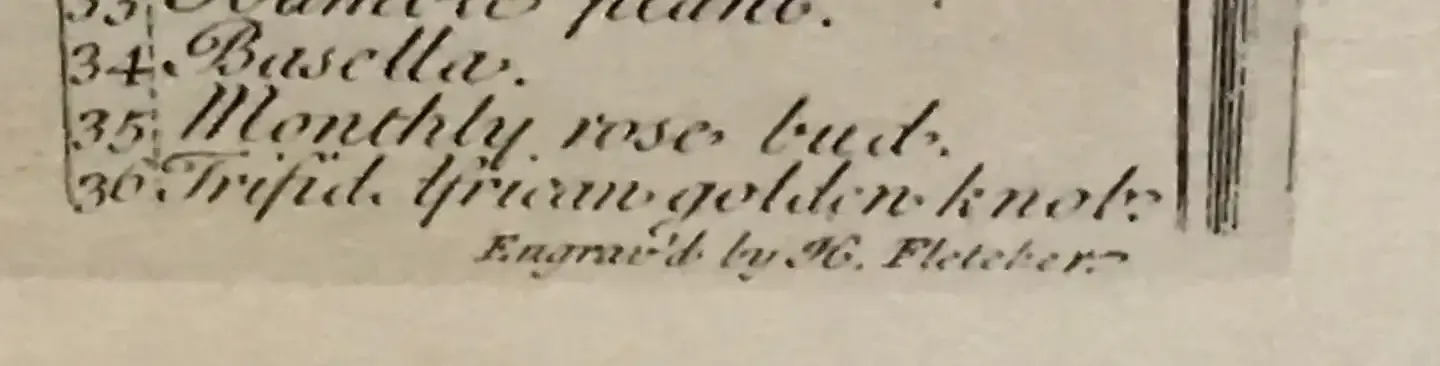 33 plant.
34 Basella.
35 Monthly rose bud.
36 Trifid African golden knob.
Engrav'd by H. Fletcher.